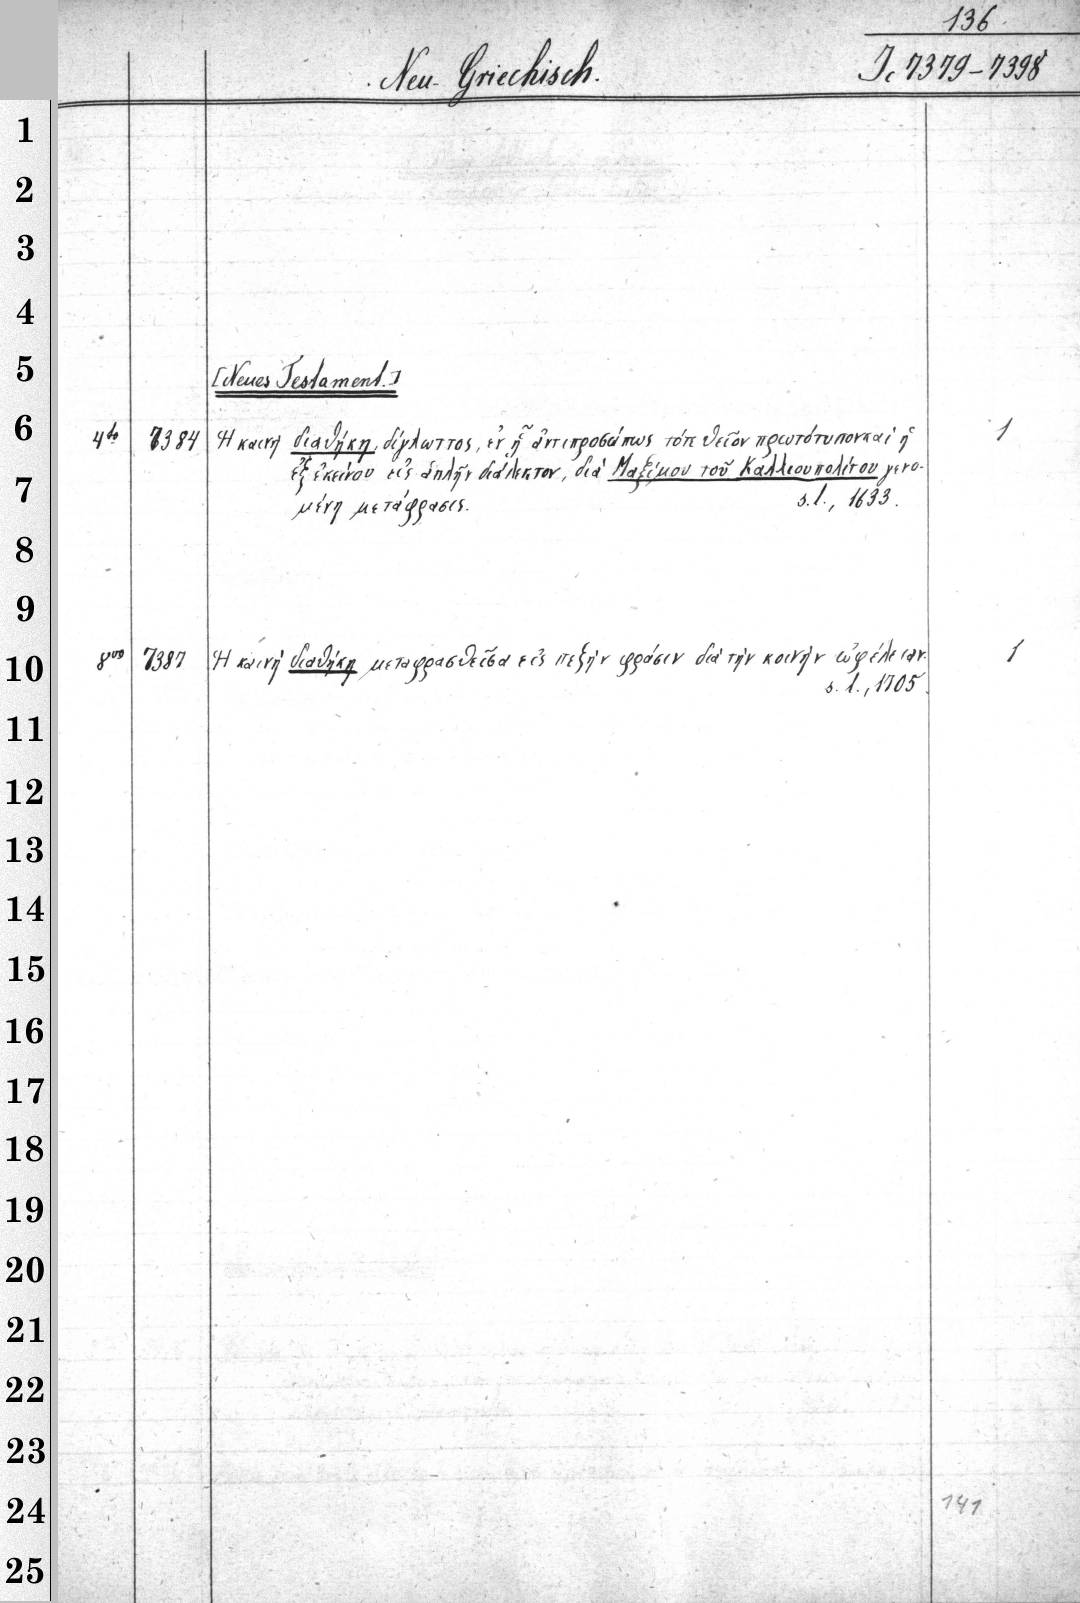 136
Neu-Griechisch.
Ic 7379-7398
1
2
3
4
5
[Neues Testament.]
6
4to 7384 Ἡ καινὴ διαθήκη, δίγλωττος, ἐν ᾗ ἀντιπροσώπως τότε θεῖον πρωτότυπον καὶ ἡ 1
ἐξ ἐκείνου εἰς ἁπλῆν διάλεκτον, διὰ Μαξίμου τοῦ Καλλιουπολίτου γενο-
7
μένη μετάφρασις. s. l., 1633.
8
9
10
8vo 7387 Ἡ καινὴ διαθήκη μεταφρασθεῖσα εἰς πεζὴν φράσιν διὰ τὴν κοινὴν ὠφέλειαν. 1
s. l., 1705.
11
12
13
14
15
16
17
18
19
20
21
22
23
24
141
25